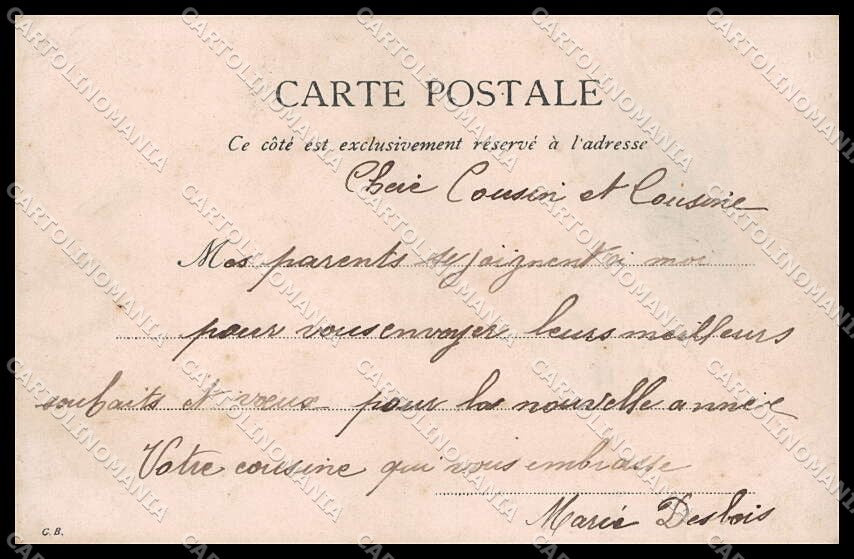 CARTE POSTALE
Ce côté est exclusivement réservé à l'adresse
Cherè Cousin et Cousine
Mes parents se joignent à moi
pour vous envoyer leurs meilleurs
souhaits et vœux pour la nouvelle année
Votre cousine qui vous embrasse
Marie Desbois
G. B.
CARTOLINOMANIA